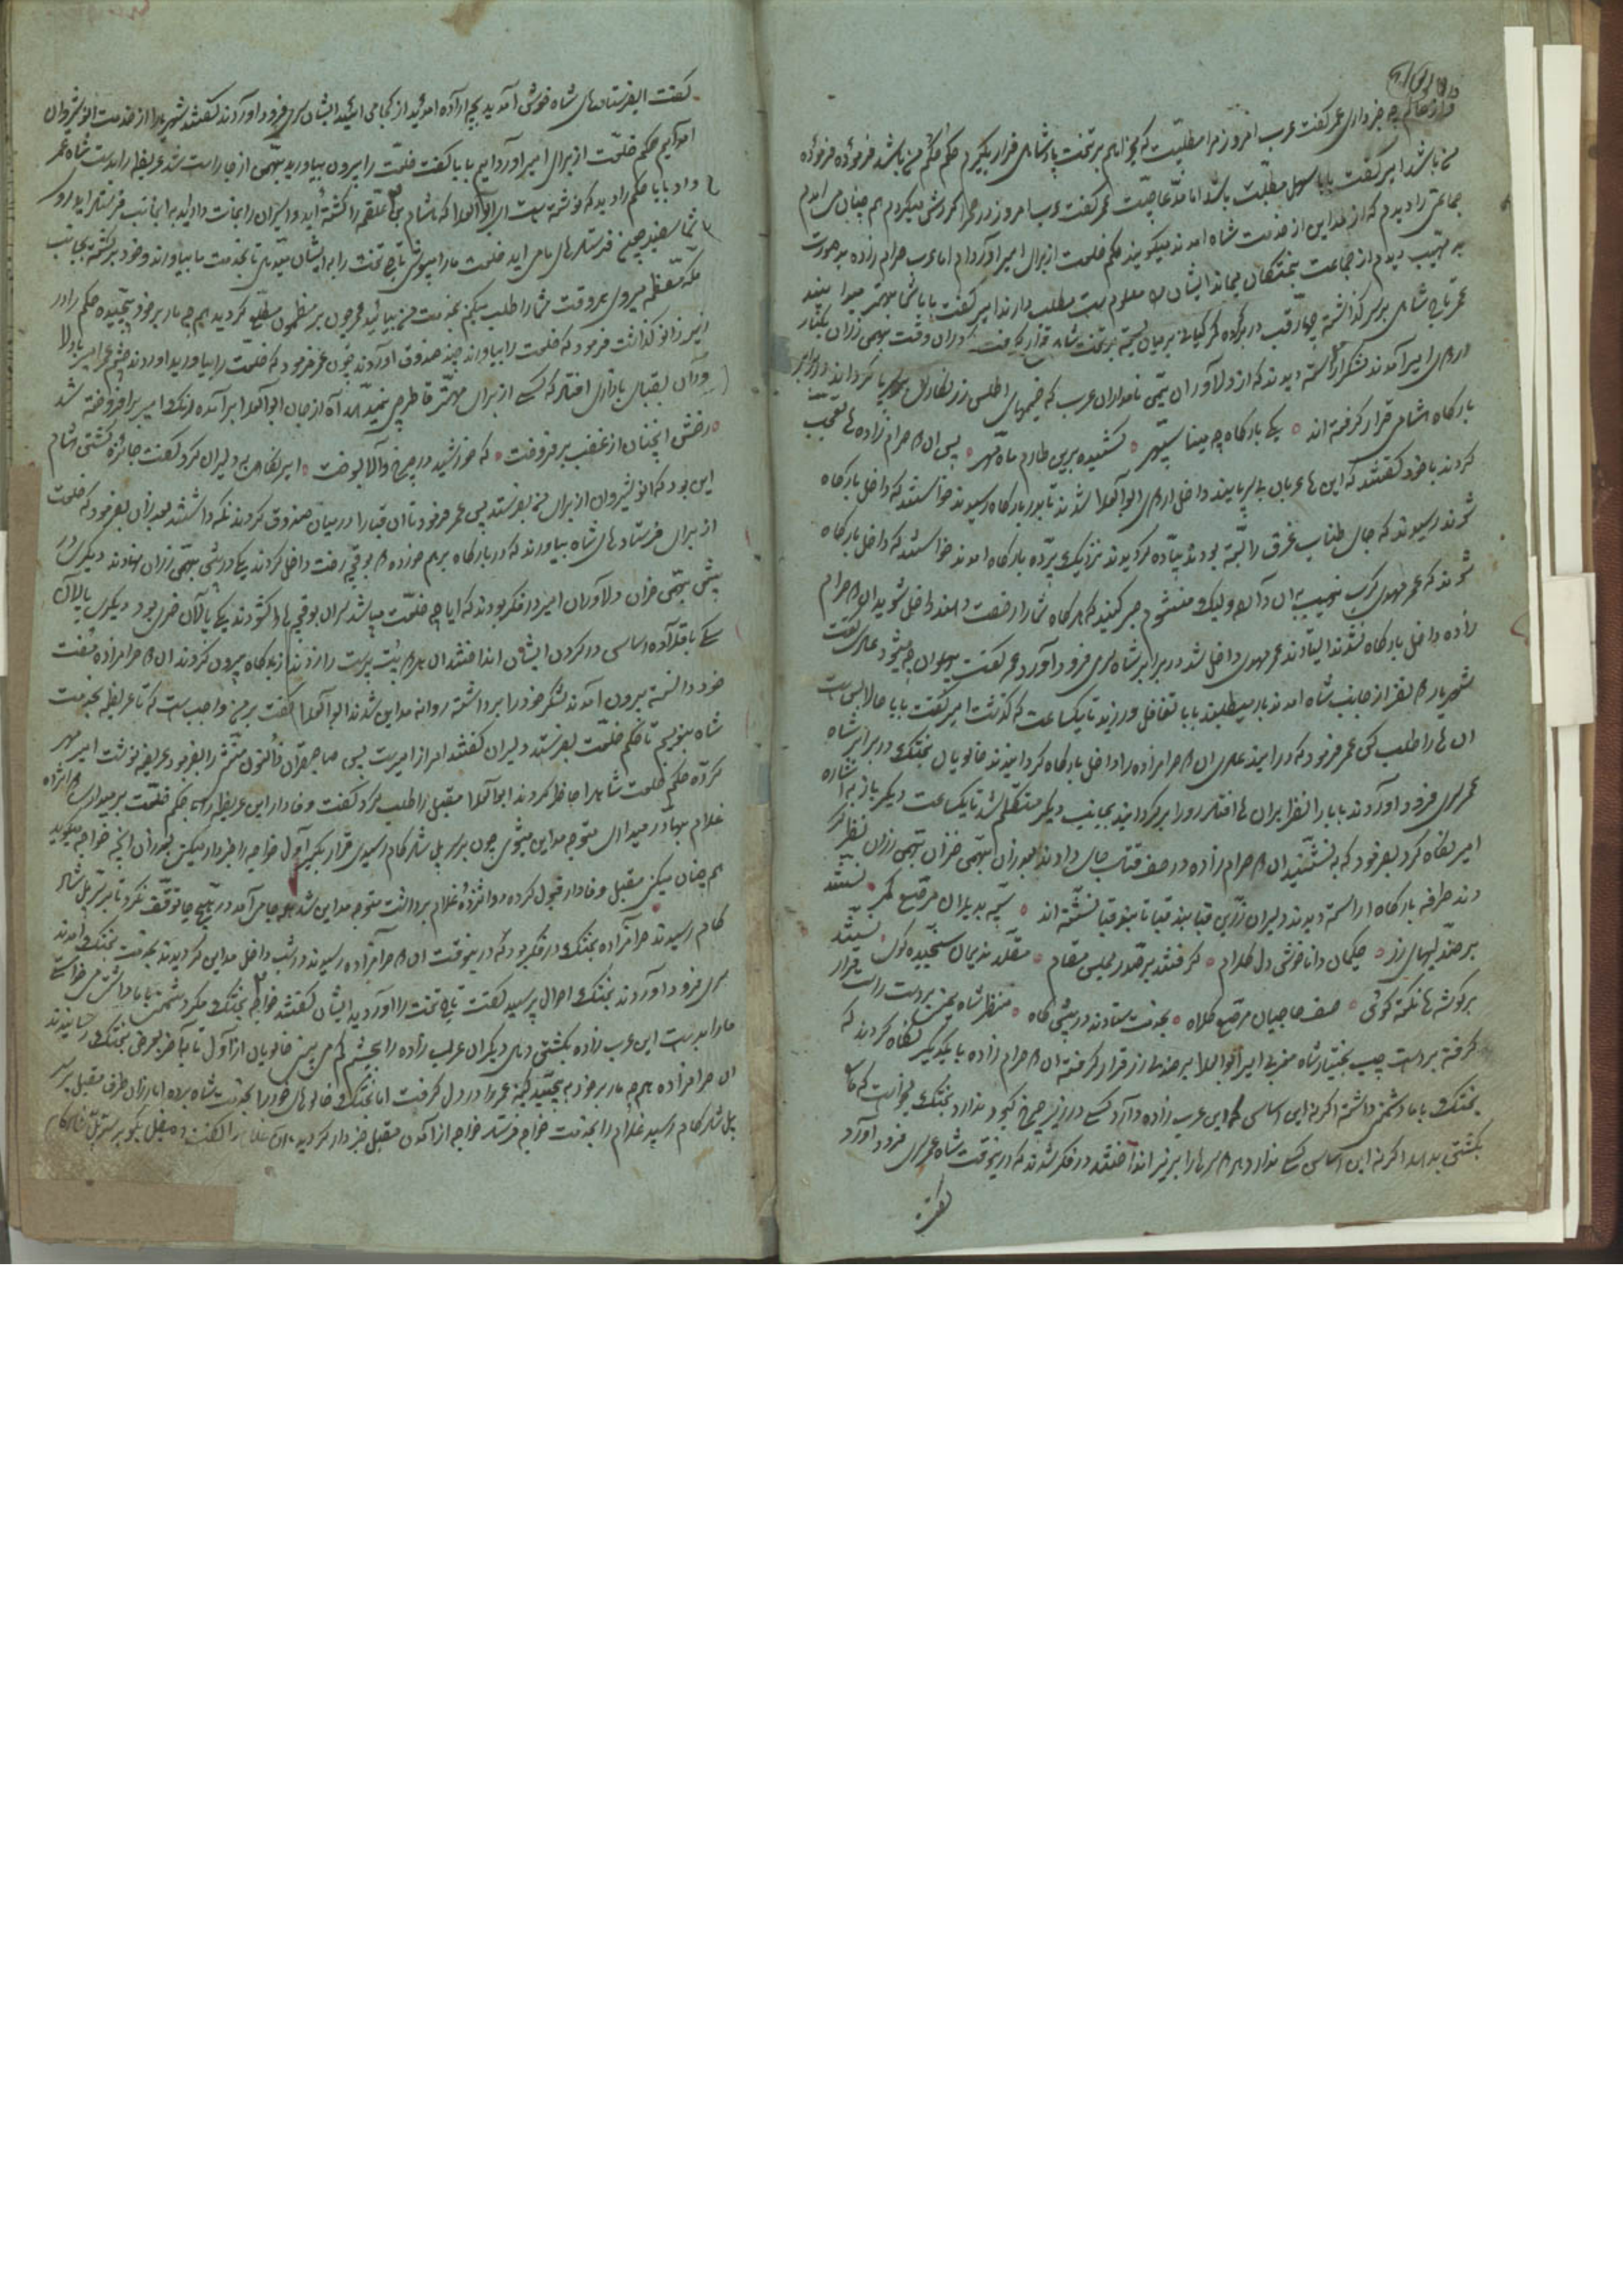 چه خبر داری عمر گفت عرب امروز مرا مطلبیست که میخواهم بر تخت پادشاهی قرار بگیرم حکم حکم من باشد فرموده فرموده
من باشد امیر گفت بابا سهل مطلبت باشد اما مدعا چیست عمر گفت عرب امروز در صحرا گردش میکردم هم چنان می آمدم
جماعتی را دیدم که از مداین از خدمت شاه آمدند میگویند حکم خلعت از برای امیر آورده‌ام اما عرب حرام زاده بد صورت
بد مهیب دیدم از جماعت بختکان میماند ایشان را معلوم است مطلب دارند امیر گفت بابا شما بهتر میدانید
عمر تاج شاهی بر سر گذاشته چهار قب در بر کرده کمر کیانی بر میان بسته بر تخت شاه قرار گرفت در آن وقت بهمن زران یکبار
اردوی امیر آمدند لشکر آراسته دیدند که از دلاوران یمنی نامداران عرب که خیمهای اطلس زرنگار بر پا کرداند در برابر
بارگاه هشامی قرار گرفته اند یکی بارگاه چه مینا سپهر کشیده برین طارم ماه و مهر پس آن حرام زاده ها تعجب
کردند با خود گفتند که این ها عربان بی سر پایند داخل اردوی ابوالعلا شدند تا بدر بارگاه رسیدند خواستند که داخل بارگاه
شوند رسیدند که جای طناب غرق را بسته بودند پیاده گردیدند نزدیک پرده بارگاه آمدند خواستند که داخل بارگاه
شوند که عمر مهدی صبر کنید که هر گاه شما را رخصت دهند داخل شوید آن حرام
زاده داخل بارگاه نشدند ایستادند عمر مهدی داخل شد در برابر شاه سری فرود آورد عمر گفت پهلوان چه میشود عادی گفت
شهریار نفر از جانب شاه آمدند بار میطلبند بابا تغافل ورزید تا یکساعت که گذشت امیر گفت بابا حالا بس است
آن ها را طلب کن عمر فرمود که در آیند عادی آن حرامزاده را داخل بارگاه گردانیدند خالویان بختک در برابر شاه
عمر سری فرود آوردند بابا را نظر بر آن ها افتاد رو را برگردانید بجانب دیگر متکلم شد تا یکساعت دیگر باز به اشاره
امیر نگاه کرد بفرمود که بنشینید آن حرام زاده در صف جای دادند بهمن خزان بهمن زران نظر کر
دند طرفه بارگاه آراسته دیدند دلیران زرین قبا بند قبا تا بند قبا نشسته اند یلان مرصع کمر نشستند
بر صندلیهای زر حکیمان دانا خوش دل کلام گرفتند بر صدر مجلس مقام مقلد ندیمان سنجیده گوی نشستند
بر گوشه ها نکته گوی صف حاجیان مرصع کلاه بخدمت ستادند در پیش گاه منظر شاه یمن بر دست راست قرار
گرفته بر دست چپ بختیار شاه مغربی امیر ابوالعلا بر صندلی زر قرار گرفته آن حرام زاده با یکدیگر نگاه کردند که
بختک با ما دشمنی داشته اگرنه این اساسی که این عرب زاده دارد کسی در زیر چرخ کبود ندارد بختک میخواست که ما
بکشتن بدهد اگرنه این اساسی کسی ندارد سرها را بزیر انداختند در فکر شدند که درینوقت شاه عمر سری فرود آورد
گفت
گفت ایفرستادهای شاه خوش آمدید بچه اراده آمدید از کجا می آیید ایشان سری فرود آوردند گفتند شهریارا از خدمت انوشیروان
آمدایم حکم خلعت از برای امیر آورده‌ایم بابا گفت خلعت را بیرون بیاورید بهمن از جا راست شد عریضه را بدست شاه عمر
داد بابا حکم را دید که نوشته است ای ابوالعلا که هشام بن علقمه را کشته اید و اسیران را نجات دادید به اینجانب فرستاد اید رو
شما سفید چنین فرستادهای ما می آید خلعت ما را میپوش تاج تخت را به ایشان میدهی تا بخدمت ما بیاورند و خود برگشته بجانب
مکه معظمه میروی هر وقت شما را طلب میکنم بخدمت من بیائید عمر چون بر مضمون مطلع گردید هم چه مار بر خود پیچیده حکم را در
زیر زانو گذاشت فرمود که خلعت را بیاورند چند صندوق آوردند چون عمر فرمود که خلعت را بیاورید آوردند چشم عمر امیر با دلا
وران بقبای بازاری افتاد که کسی از برای مهتر قاطرچی نمیدهد آه از جان ابوالعلا برآمده رنگ امیر برافروخته شد
رخش آنچنان از غضب بر فروخت که خورشید در چرخ والا بسوخت امیر نگاهی بدلیران کرد گفت جائزه کشتن هشام
این بود که انوشیروان از برای من بفرستد پس عمر فرمود تا آن قبا را در میان صندوق کردند نگه داشتند بعد از آن بفرمود که خلعت
از برای فرستادهای شاه بیاورند که در بارگاه برهم خورده بوقچه رخت داخل کردند یکی در پیش بهمن زران نهادند دیگری در
پیش بهمن خزان دلاوران امیر در فکر بودند که آیا چه خلعت میباشد سران بوقچه ها را گشودند یکی پالان خری بود دیگری پالان
سگ با قلاده اساسی در گردن ایشان انداختند آن بت پرست را زدند از بارگاه بیرون کردند آن حرامزاده خفت
خود دانسته بیرون آمدند لشکر خود را برداشته روانه مداین شدند ابوالعلا گفت بر من واجب است که تا عریضه بخدمت
شاه بنویسم تا حکم خلعت بفرستد دلیران گفتند امر از امیرست پس صاحبقران خاتون منشی را بفرمود عریضه نوشت امیر مهر
کرده حکم خلعت شاه را حاضر کردند ابوالعلا مقبل را طلب کرد گفت وفادار این عریضه را حکم خلعت بر میداری
غلام بهادر میداری متوجه مداین میشوی چون بر سر پل شادکام رسیدی قرار بگیر اول خواجه را خبردار میکنی بعد از آن آنچه خواجه میگوید
هم چنان میکنی مقبل وفادار قبول کرده دوانزده غلام برداشت متوجه مداین شد در هیچ جا توقف نکرد تا بر سر پل شاد
کام رسیدند حرامزاده بختک در فکر بود که درینوقت آن حرامزاده رسیدند در شب داخل مداین گردیدند بخدمت بختک آمدند
سری فرود آوردند بختک احوال پرسید گفت تاج تخت را آوردید ایشان گفتند خواجه بختک مگر دشمنی با ما داشتی می خواستی
ما را بدست این عرب زاده بکشتن دهی دیگر آن عرب زاده را بچشم کم می بینی خالویان از اول تا بآخر بعرض بختک رسانیدند
آن حرامزاده هم چه مار بر خود به پیچید کینه عمر را در دل گرفت اما بختک خالوهای خود را بخدمت شاه برده اما از آن طرف مقبل بر سر
پل شادکام رسید غلام را بخدمت خواجه فرستاد خواجه از آمدن مقبل خبردار گردید